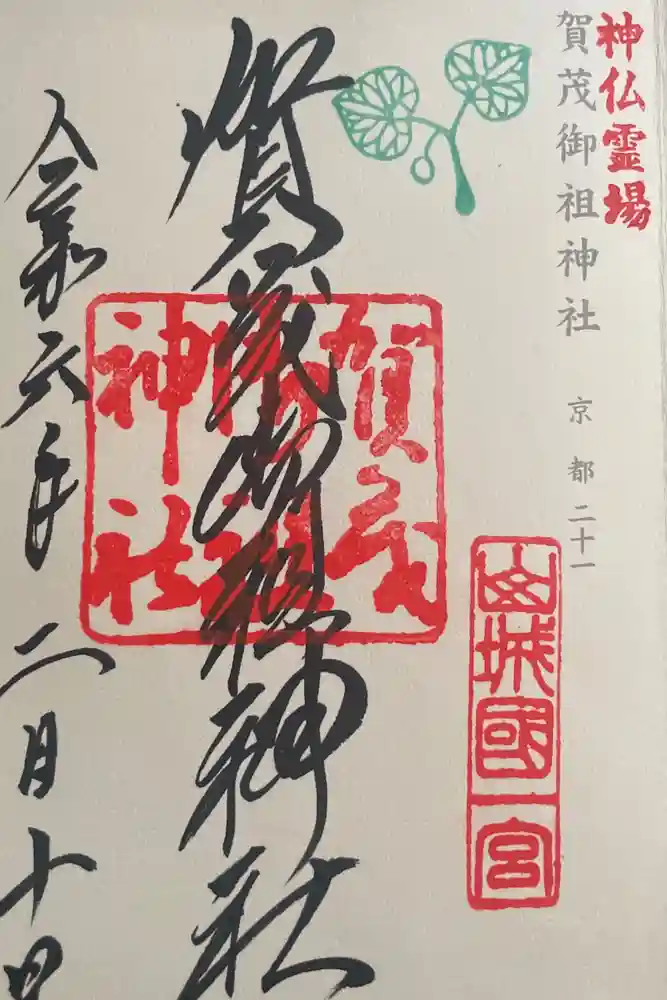 神仏霊場
賀茂御祖神社 京都二十一
山城國一宮
賀茂御祖神社
賀茂御祖神社
令和六年二月十日